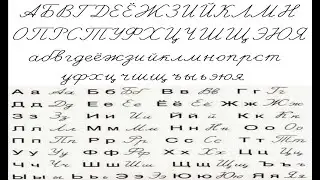 АБВГДЕЁЖЗИЙКЛМН
ОПРСТУФХЦЧШЩЭЮЯ
абвгдеёжзийклмнопрст
уфхцчшщъыьэюя
Аа Аа Бб Бб Вв Вв Гг Гг
Дд Дд Ее Ее Ёё Ёё Жж Жж
Зз Зз Ии Ии Йй Йй Кк Кк
Лл Лл Мм Мм Нн Нн Оо Оо
Пп Пп Рр Рр Сс Сс Тт Тт
Уу Уу Фф Фф Хх Хх Цц Цц
Чч Чч Шш Шш Щщ Щщ Ъъ ъ
Ыы ы Ьь ь Ээ Ээ Юю Юю Яя Яя